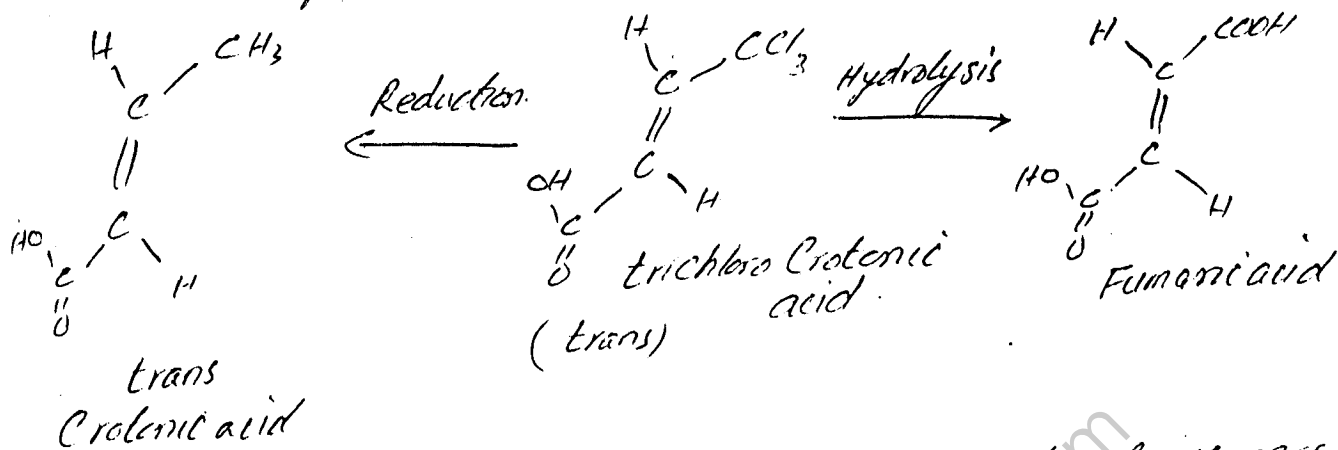 H CH3
C
C
HO
C
O
H
trans
Crotonic acid
Reduction.
H CCl3
C
C
OH
C
O
H
trichloro Crotonic
acid.
(trans)
Hydrolysis
H COOH
C
C
HO
C
O
H
Fumaric acid
m